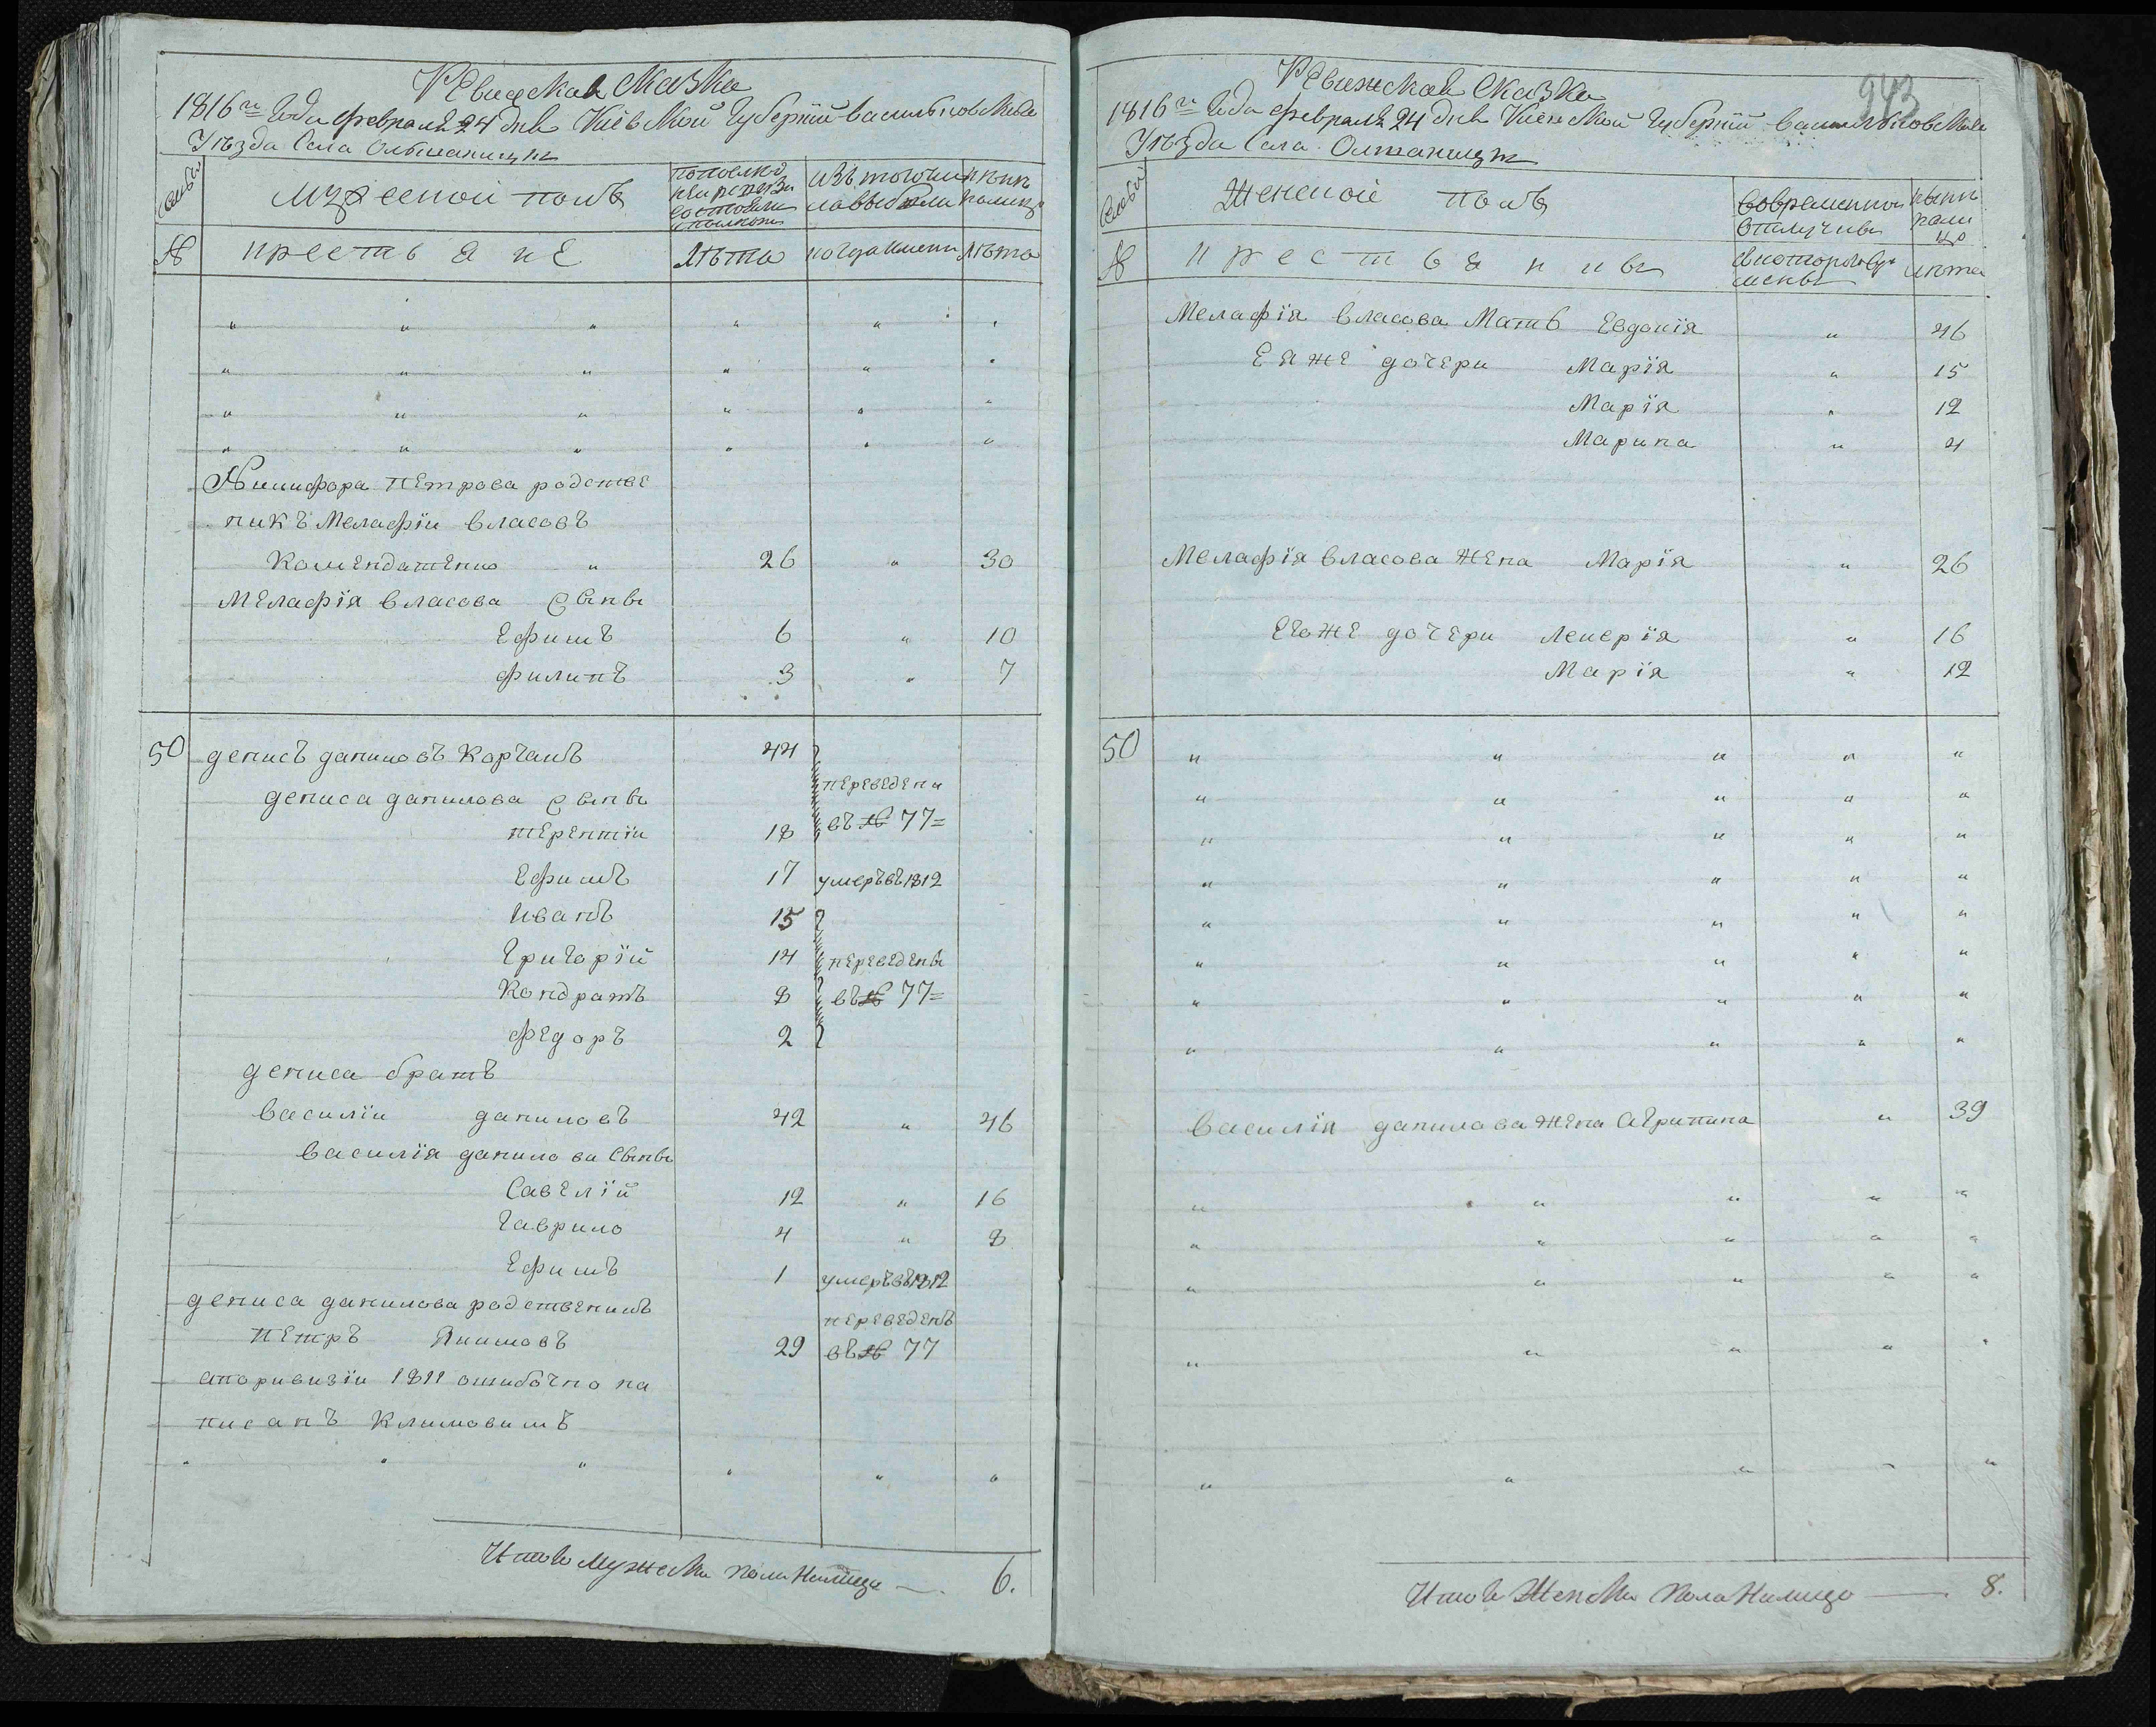 Ревижская сказка
1816го Года февраля 24 дня Киевской Губернии васильковскаго
Уезда Села Ольшаницы
Мужеской полъ
изъ того числа выбыло
ныне налицо
№
крестьяне
лѣта
когда именно
лѣта
" " " " " "
" " " " " "
" " " " " "
" " " " " "
Никифора петрова родстве
никъ Мелафiи власовъ
Комендатенко " 26 " 30
Мелафiя власова сыны
Ефимъ 6 " 10
филипъ 3 " 7
50 денисъ даниловъ Корчакъ 44
дениса данилова сыны
переведены
терентiи 18
въ № 77=
Ефимъ 17 умеръ въ 1812
Иванъ 15
Григорiй 14 переведены
Кондратъ 8 въ № 77=
федоръ 2
дениса братъ
василiи даниловъ 42 " 46
василiя данилова Сыны
Савелiй 12 " 16
Гаврило 4 " 8
Ефимъ 1 умеръ въ 1812
дениса данилова родственикъ
переведенъ
петръ Якимовъ 29 въ № 77
апоривизiи 1811 ошибочно на
писанъ Климовимъ
" " " " " "
Итого мужеска пола налицо — 6.
943
Ревижская сказка
1816го Года февраля 24 дня Киевской Губернии васильковскаго
Уезда Села Олшаницы
Женской полъ
Вовременной отлучке
ныне нали цо
№
крестьянки
скоторого времены
лѣта
Мелафiя власова Мать Евдокiя " 46
Еяже дочери Марiя " 15
Марiя " 12
Марина " 4
Мелафiя власова жена Марiя " 26
Егоже дочери Лекерiя " 16
Марiя " 12
50 " " " " "
" " " " "
" " " " "
" " " " "
" " " " "
" " " " "
" " " " "
" " " " "
василiя данилова жена Агрипина " 39
" " " " "
" " " " "
" " " " "
" " " " "
" " " " "
Итого Женска пола налицо — 8.